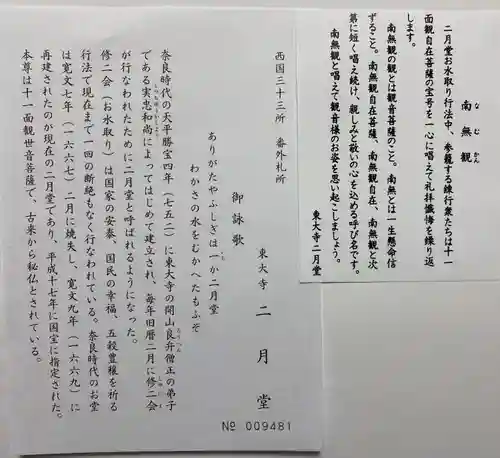 南無観
なむかん
二月堂お水取り行法中、参籠する練行衆たちは十一
面観自在菩薩の宝号を一心に唱えて礼拝懺悔を繰り返
します。
南無観の観とは観音菩薩のこと。南無とは一生懸命信
ずること。南無観自在菩薩、南無観自在、南無観と次
第に短く唱え続け、親しみと敬いの心を込める呼び名です。
南無観と唱えて観音様のお姿を思い起こしましょう。
東大寺二月堂
西国三十三所 番外札所
東大寺 二月堂
御詠歌
ありがたやふしぎは一か二月堂
わかさの水をむかへたもふぞ
奈良時代の天平勝宝四年（七五二）に東大寺の開山良弁僧正の弟子
である実忠和尚によってはじめて建立され、毎年旧暦二月に修二会
が行なわれたために二月堂と呼ばれるようになった。
修二会（お水取り）は国家の安泰、国民の幸福、五穀豊穣を祈る
行法で現在まで一回の断絶もなく行なわれている。奈良時代のお堂
は寛文七年（一六六七）二月に焼失し、寛文九年（一六六九）に
再建されたのが現在の二月堂であり、平成十七年に国宝に指定された。
本尊は十一面観世音菩薩で、古来から秘仏とされている。
№ 009481